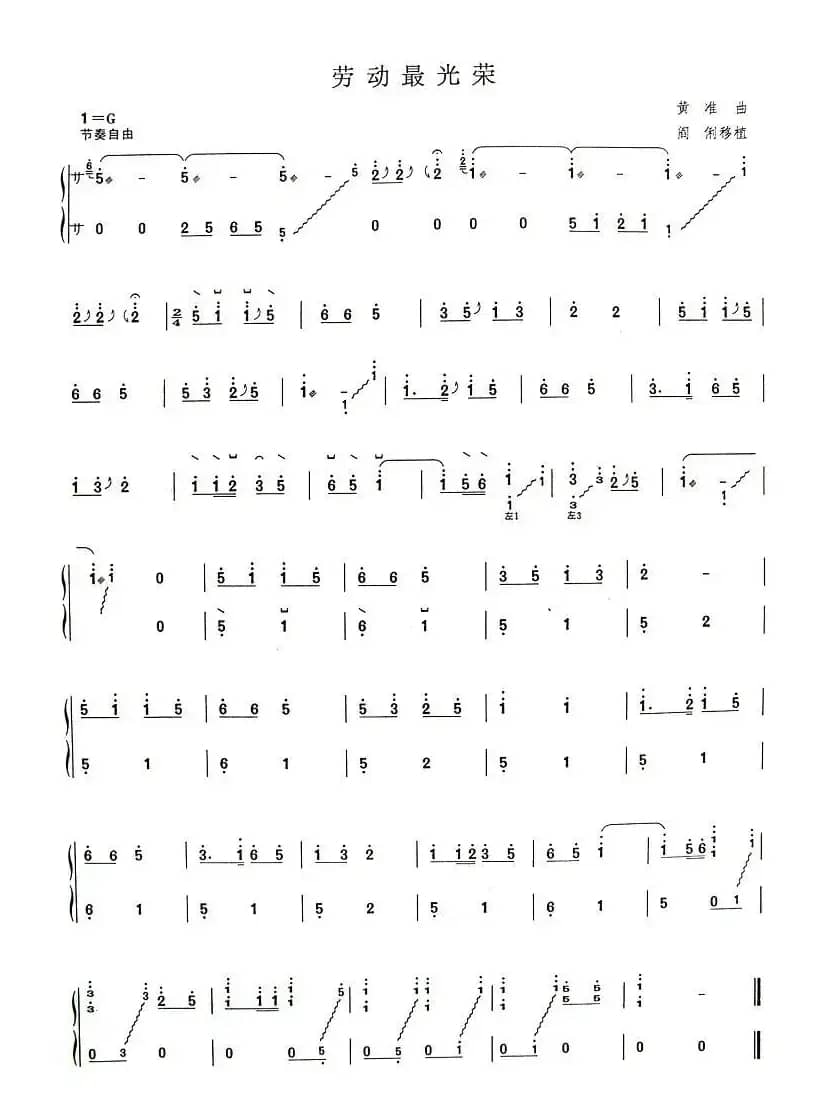 劳动最光荣
黄准曲
1=G
节奏自由
阎俐移植
サ 5 - 5 - 5 - 5 2 2 (2 1 - 1 - 1 - 1
サ 0 0 2 5 6 5 5 0 0 0 0 5 1 2 1 1
2 2 (2 | 2/4 5 1 1 5 | 6 6 5 | 3 5 1 3 | 2 2 | 5 1 1 5 |
6 6 5 | 5 3 2 5 | 1 - 1 1 | 1. 2 1 5 | 6 6 5 | 3. 1 6 5 |
1 3 2 | 1 1 2 3 5 | 6 5 1 | 1 5 6 1 1 | 3 3 2 5 | 1 - 1
左1 左3
1 1 0 | 5 1 1 5 | 6 6 5 | 3 5 1 3 | 2 - |
0 | 5 1 | 6 1 | 5 1 | 5 2 |
5 1 1 5 | 6 6 5 | 5 3 2 5 | 1 1 | 1. 2 1 5 |
5 1 | 6 1 | 5 2 | 5 1 | 5 1 |
6 6 5 | 3. 1 6 5 | 1 3 2 | 1 1 2 3 5 | 6 5 1 | 1 5 6 1 1 |
6 1 | 5 1 | 5 2 | 5 1 | 6 1 | 5 0 1 |
3 3 3 2 5 | 1 1 1 1 5 | 5 5 1 | 1 1 6 6 5 5 | 1 - ‖
0 3 0 | 0 0 5 | 0 5 0 1 | 0 1 0 0 | 0 0 ‖